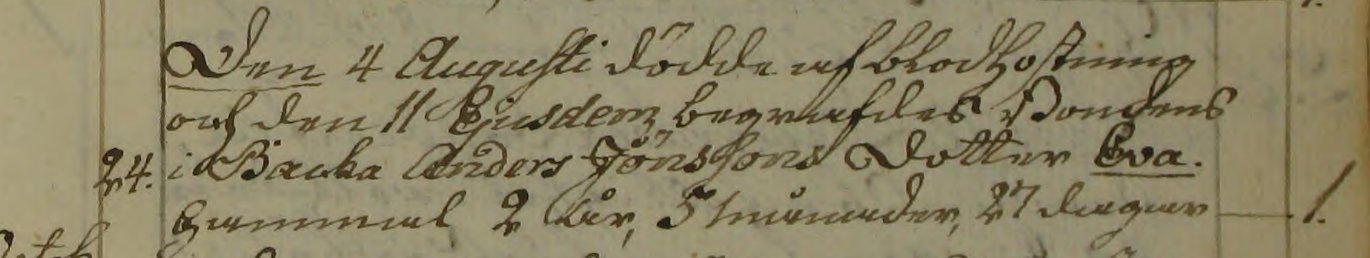 Den 4 Augusti dödde af blodhostning
och den 11 Ejusdem begrafdes Bondens
24. i Backa Anders Jönssons Dotter Eva.
gammal 2 år, 5 månader, 27 dagar 1.